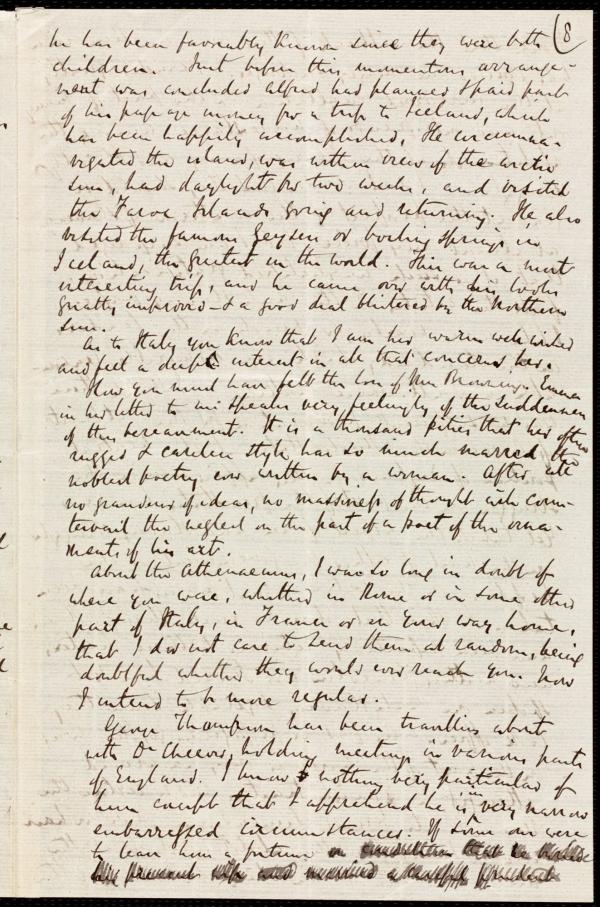 (8
he has been favorably known since they were both
children. Just before this momentous arrange-
ment was concluded Alfred had planned & paid part
of his passage money for a trip to Iceland, which
has been happily accomplished. He circumna-
vigated the island, was within view of the arctic
sun, had daylight for two weeks, and visited
the Faroe Islands going and returning. He also
visited the famous Geysers or boiling springs in
Iceland, the greatest in the world. This was a most
interesting trip, and he came over with his looks
greatly improved - & a good deal blistered by the Northern
sun.
As to Italy you know that I am her warm well wisher
and feel a deep interest in all that concerns her.
How you must have felt the loss of Mrs Browning. Emma
in her letter to me speaks very feelingly of the suddenness
of this bereavement. It is a thousand pities that her often
rugged & careless style has so much marred the
noblest poetry ever written by a woman. After all
no grandeur of ideas, no massiness of thought will coun-
tervail the neglect on the part of a poet of the orna-
ments of his art.
About the Athenaeums, I was so long in doubt of
where you were, whether in Rome or in some other
part of Italy, in France or on your way home,
that I did not care to send them at random, being
doubtful whether they would ever reach you. Now
I intend to be more regular.
George Thompson has been travelling about
with Dr Cheever, holding meetings in various parts
of England. I know nothing very particular of
him except that I apprehend he is in very narrow
embarrassed circumstances. If some one were
to leave him a fortune